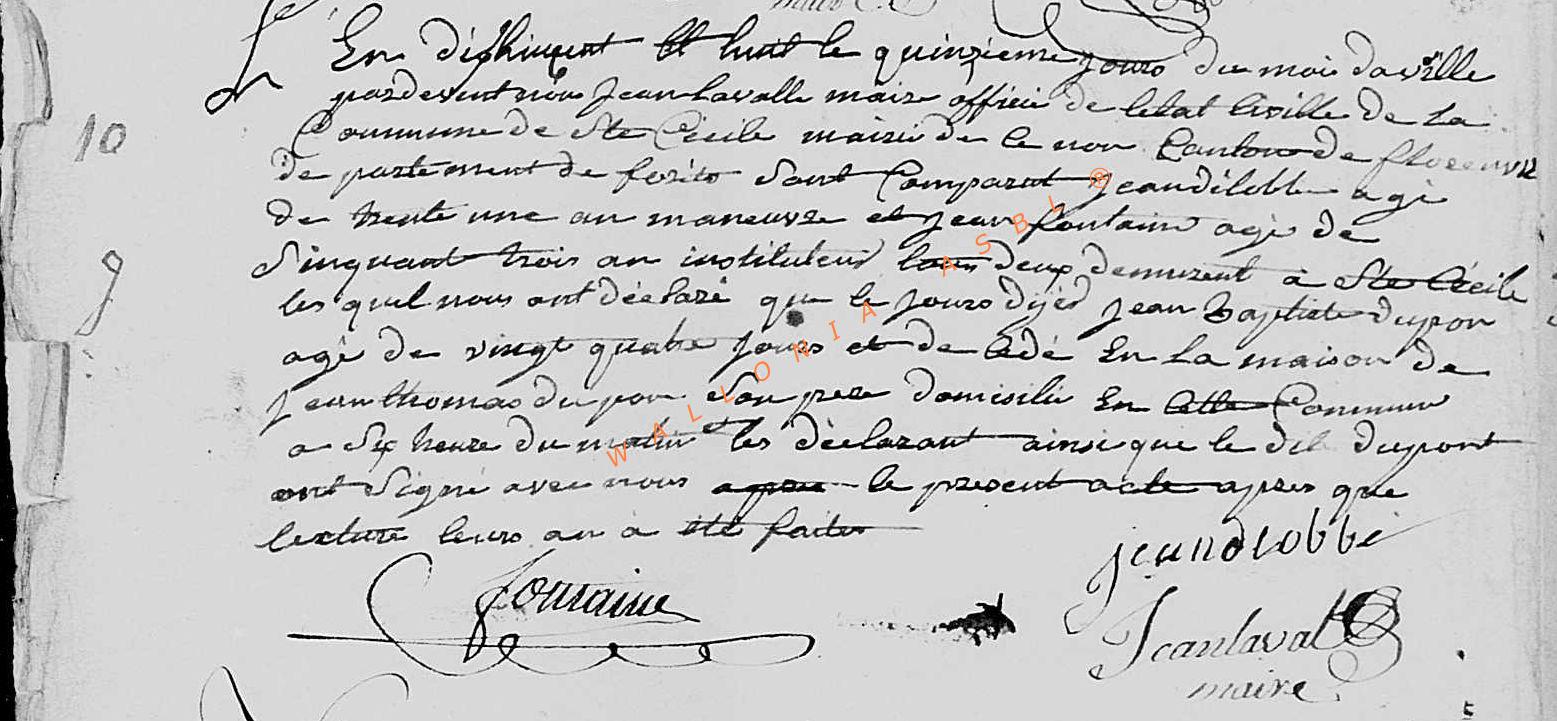 En dixhuicent et huit le quinzieme jours du mois davrille
pardevent nou Jean lavalle maire officié de letat Civille de La
10
Commune de Ste Cécile mairie de ce non Canton de florenville
departement de forêts Sont Comparut jean délobbe agé
de trente une an maneuvre et jean fontaine agé de
Sinquant trois an instituteur tous deux demurent à Ste Cécile
9
les quel nous ont déclaré que le jours dijed jean Baptiste dupon
agé de vingt quatre jours et de cédé En La maison de
jean thomas dupon Son pere domisilié En cette Commune
a Six heure du matin et les déclarant ainsi que le dit dupont
ont Signé avec nous le present acte apres que
lecture leurs an a été faites
jeandlobbe
fontaine
Jean laval
maire
WALLONIA ASBL ®